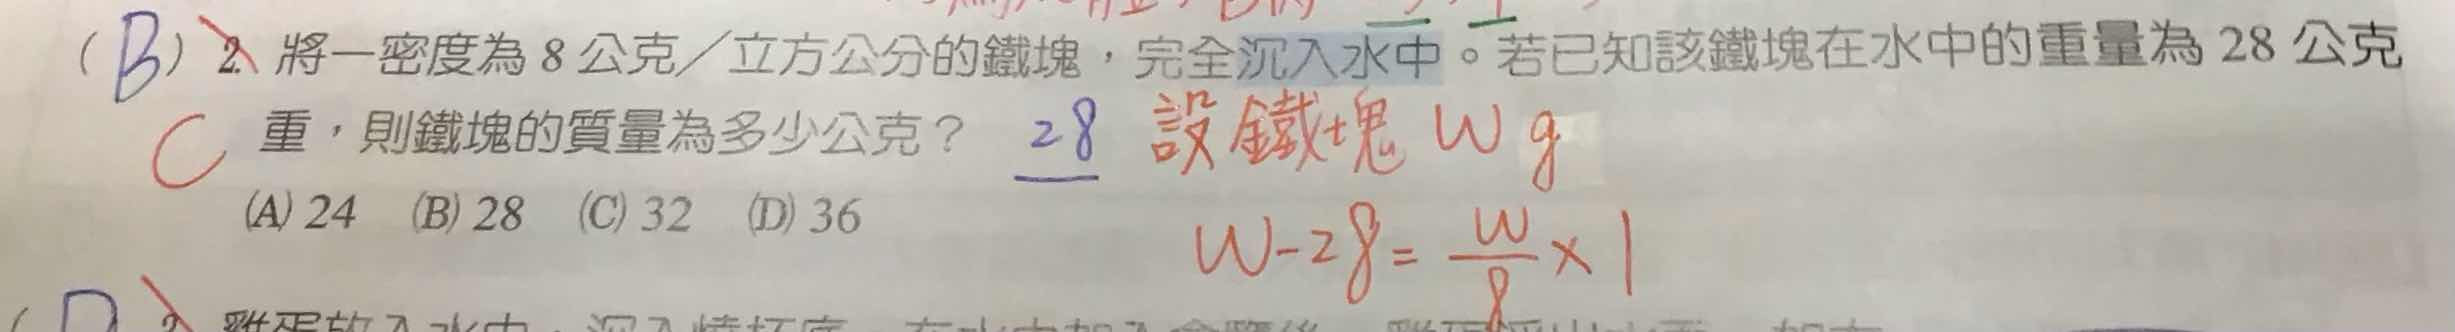 (B) 2. 將一密度為 8 公克／立方公分的鐵塊，完全沉入水中。若已知該鐵塊在水中的重量為 28 公克
C 重，則鐵塊的質量為多少公克？ 28 設鐵塊 W g
(A) 24 (B) 28 (C) 32 (D) 36
W-28= W/8 ×1